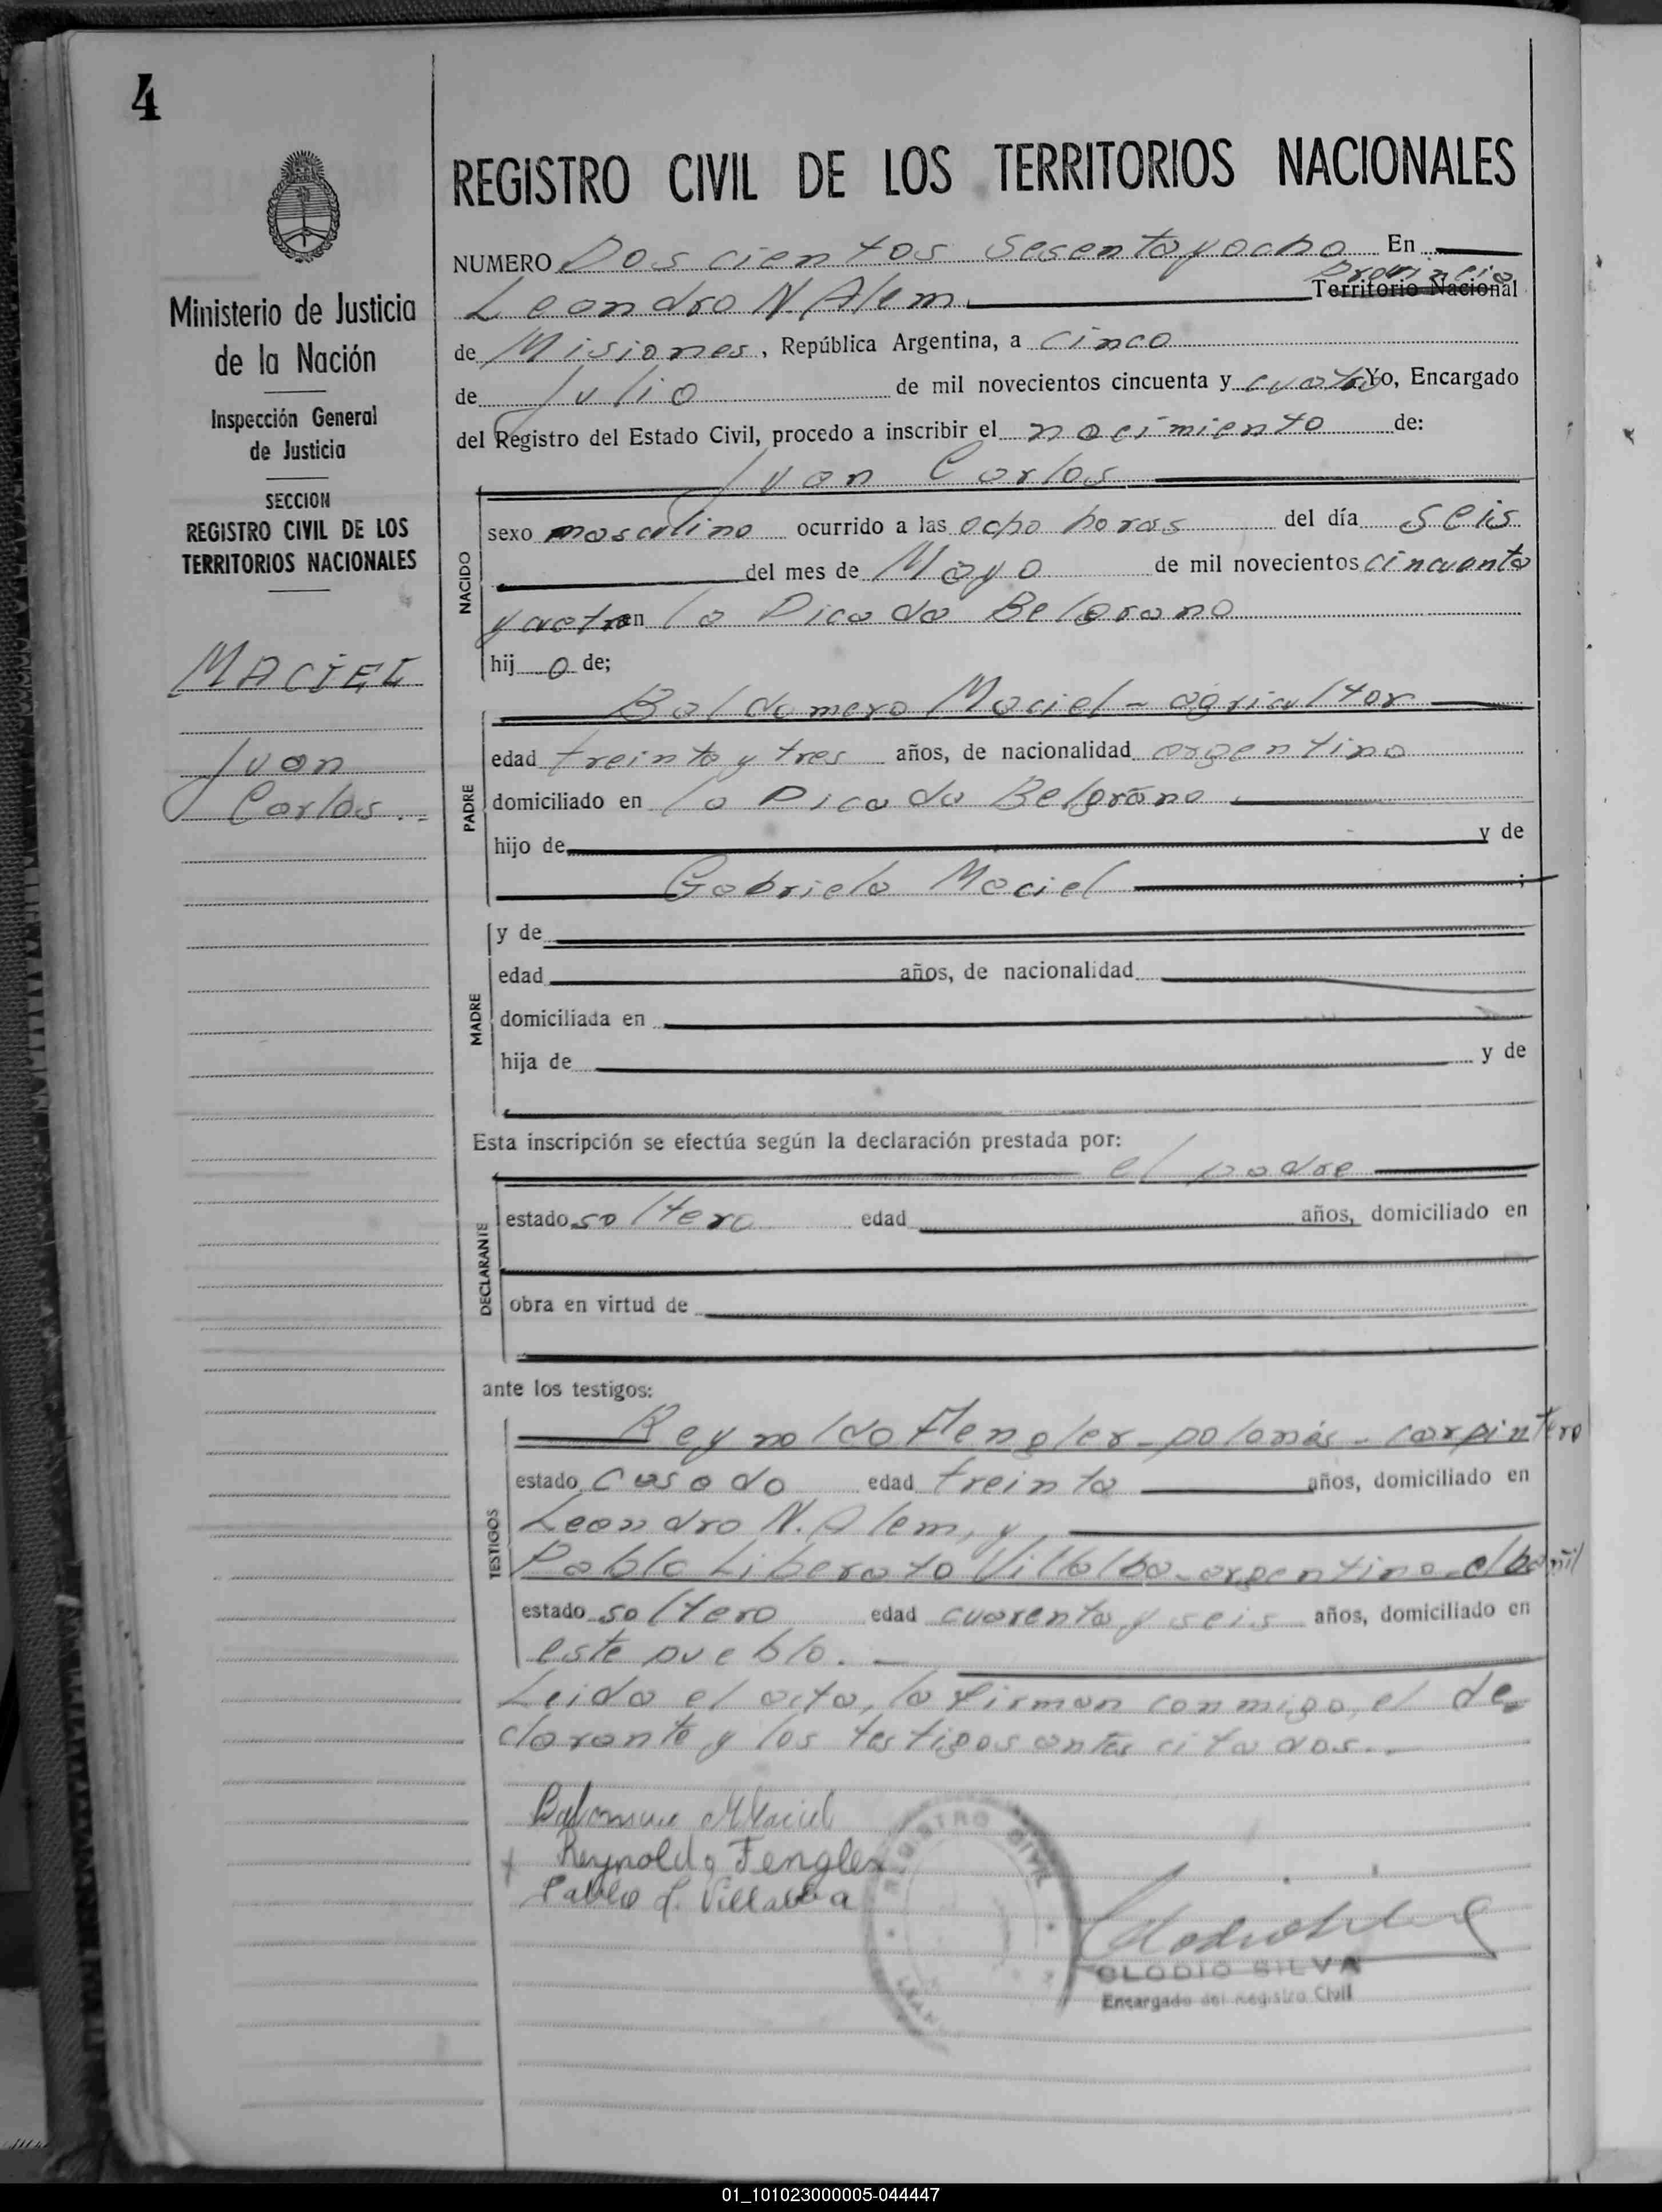 4
REGISTRO CIVIL DE LOS TERRITORIOS NACIONALES
Ministerio de Justicia
de la Nación
Inspección General
de Justicia
SECCION
REGISTRO CIVIL DE LOS
TERRITORIOS NACIONALES
MACIEL
Juan
Carlos.-
NUMERO Doscientos sesenta y ocho En
Provincia
Leandro N. Alem Territorio Nacional
de Misiones, República Argentina, a cinco
de Julio de mil novecientos cincuenta y cuatro Yo, Encargado
del Registro del Estado Civil, procedo a inscribir el nacimiento de:
Juan Carlos
NACIDO
sexo masculino ocurrido a las ocho horas del día seis
del mes de Mayo de mil novecientos cincuenta
y cuatro en la Picada Belgrano
hij o de;
Baldomero Maciel - agricultor
PADRE
edad treinta y tres años, de nacionalidad argentino
domiciliado en la Picada Belgrano
hijo de y de
Gabriela Maciel ;
MADRE
y de
edad años, de nacionalidad
domiciliada en
hija de y de
Esta inscripción se efectúa según la declaración prestada por:
el padre
DECLARANTE
estado soltero edad años, domiciliado en
obra en virtud de
ante los testigos:
TESTIGOS
Reynoldo Fengler - polonés - carpintero
estado casado edad treinta años, domiciliado en
Leandro N. Alem, y
Pablo Liberato Villalba - argentino - albañil
estado soltero edad cuarenta y seis años, domiciliado en
este pueblo. -
Leida el acta, la firman conmigo, el de-
clarante y los testigos antes citados. -
Maciel
Reynoldo Fengler
Pablo L. Villalba
REGISTRO CIVIL
CLODIO SILVA
Encargado del Registro Civil
01_101023000005-044447